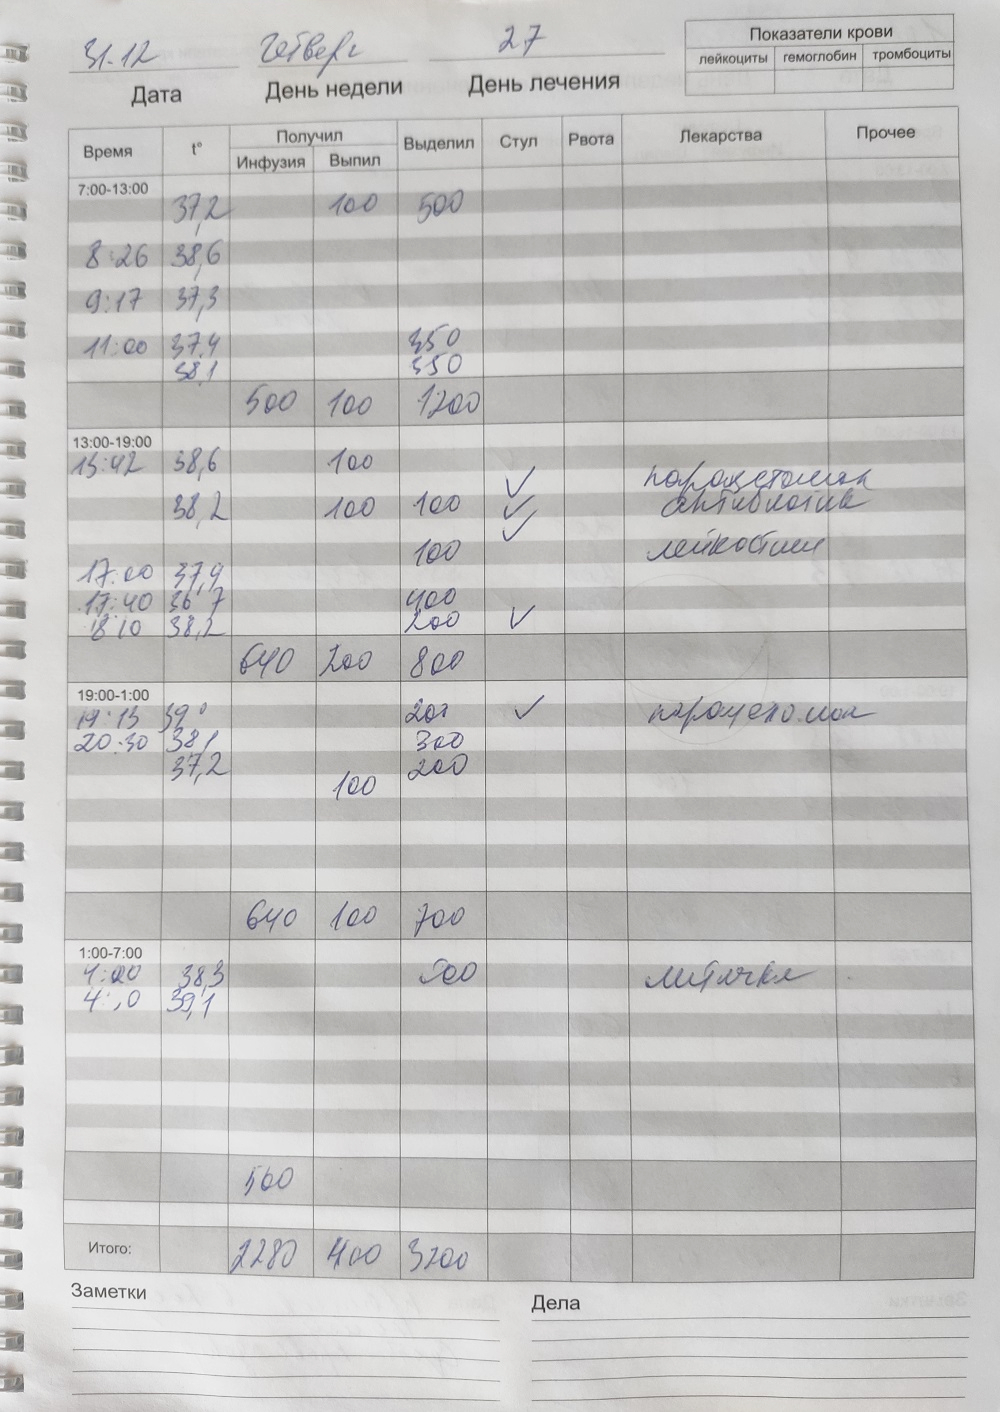 Показатели крови
31.12 Четверг 27
лейкоциты гемоглобин тромбоциты
Дата День недели День лечения
Время t° Получил Выделил Стул Рвота Лекарства Прочее
Инфузия Выпил
7:00-13:00
37,2 100 500
8:26 38,6
9:17 37,3
11:00 37,4 350
38,1 350
500 100 1200
13:00-19:00
13:42 38,6 100
✓ парацетомол
38,2 100 100 ✓ антибиотик
✓
100 лейкостим
17:00 37,9
17:40 36 7 400
18 10 38,2 200 ✓
640 200 800
19:00-1:00
19:15 39° 200 ✓ парацетомол
20:30 38,1 300
37,2 200
100
640 100 700
1:00-7:00
38,3 500 литичка
39,1
500
Итого: 2280 400 3200
Заметки
Дела